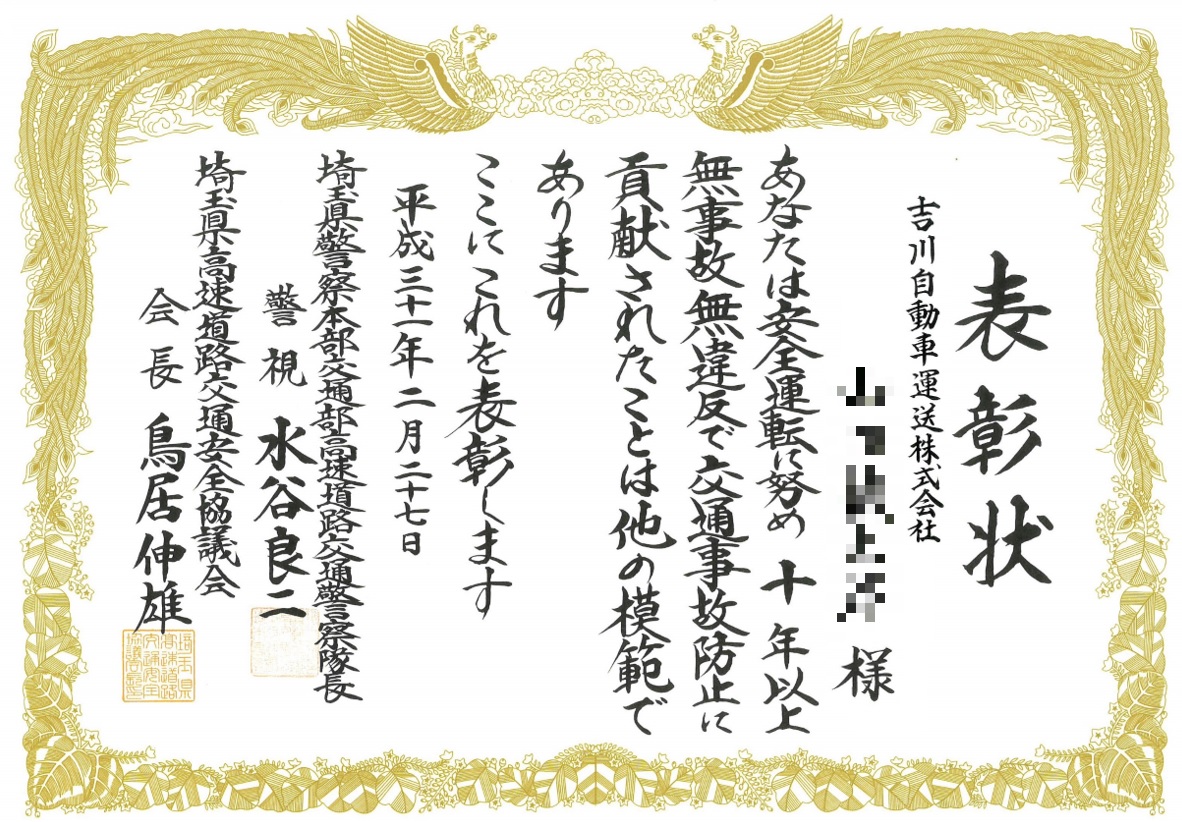 表彰状
吉川自動車運送株式会社
様
あなたは安全運転に努め十年以上
無事故無違反で交通事故防止に
貢献されたことは他の模範で
あります
ここにこれを表彰します
平成三十一年二月二十七日
埼玉県警察本部交通部高速道路交通警察隊長
警視 水谷良二
埼玉県高速道路交通安全協議会
会長 鳥居伸雄